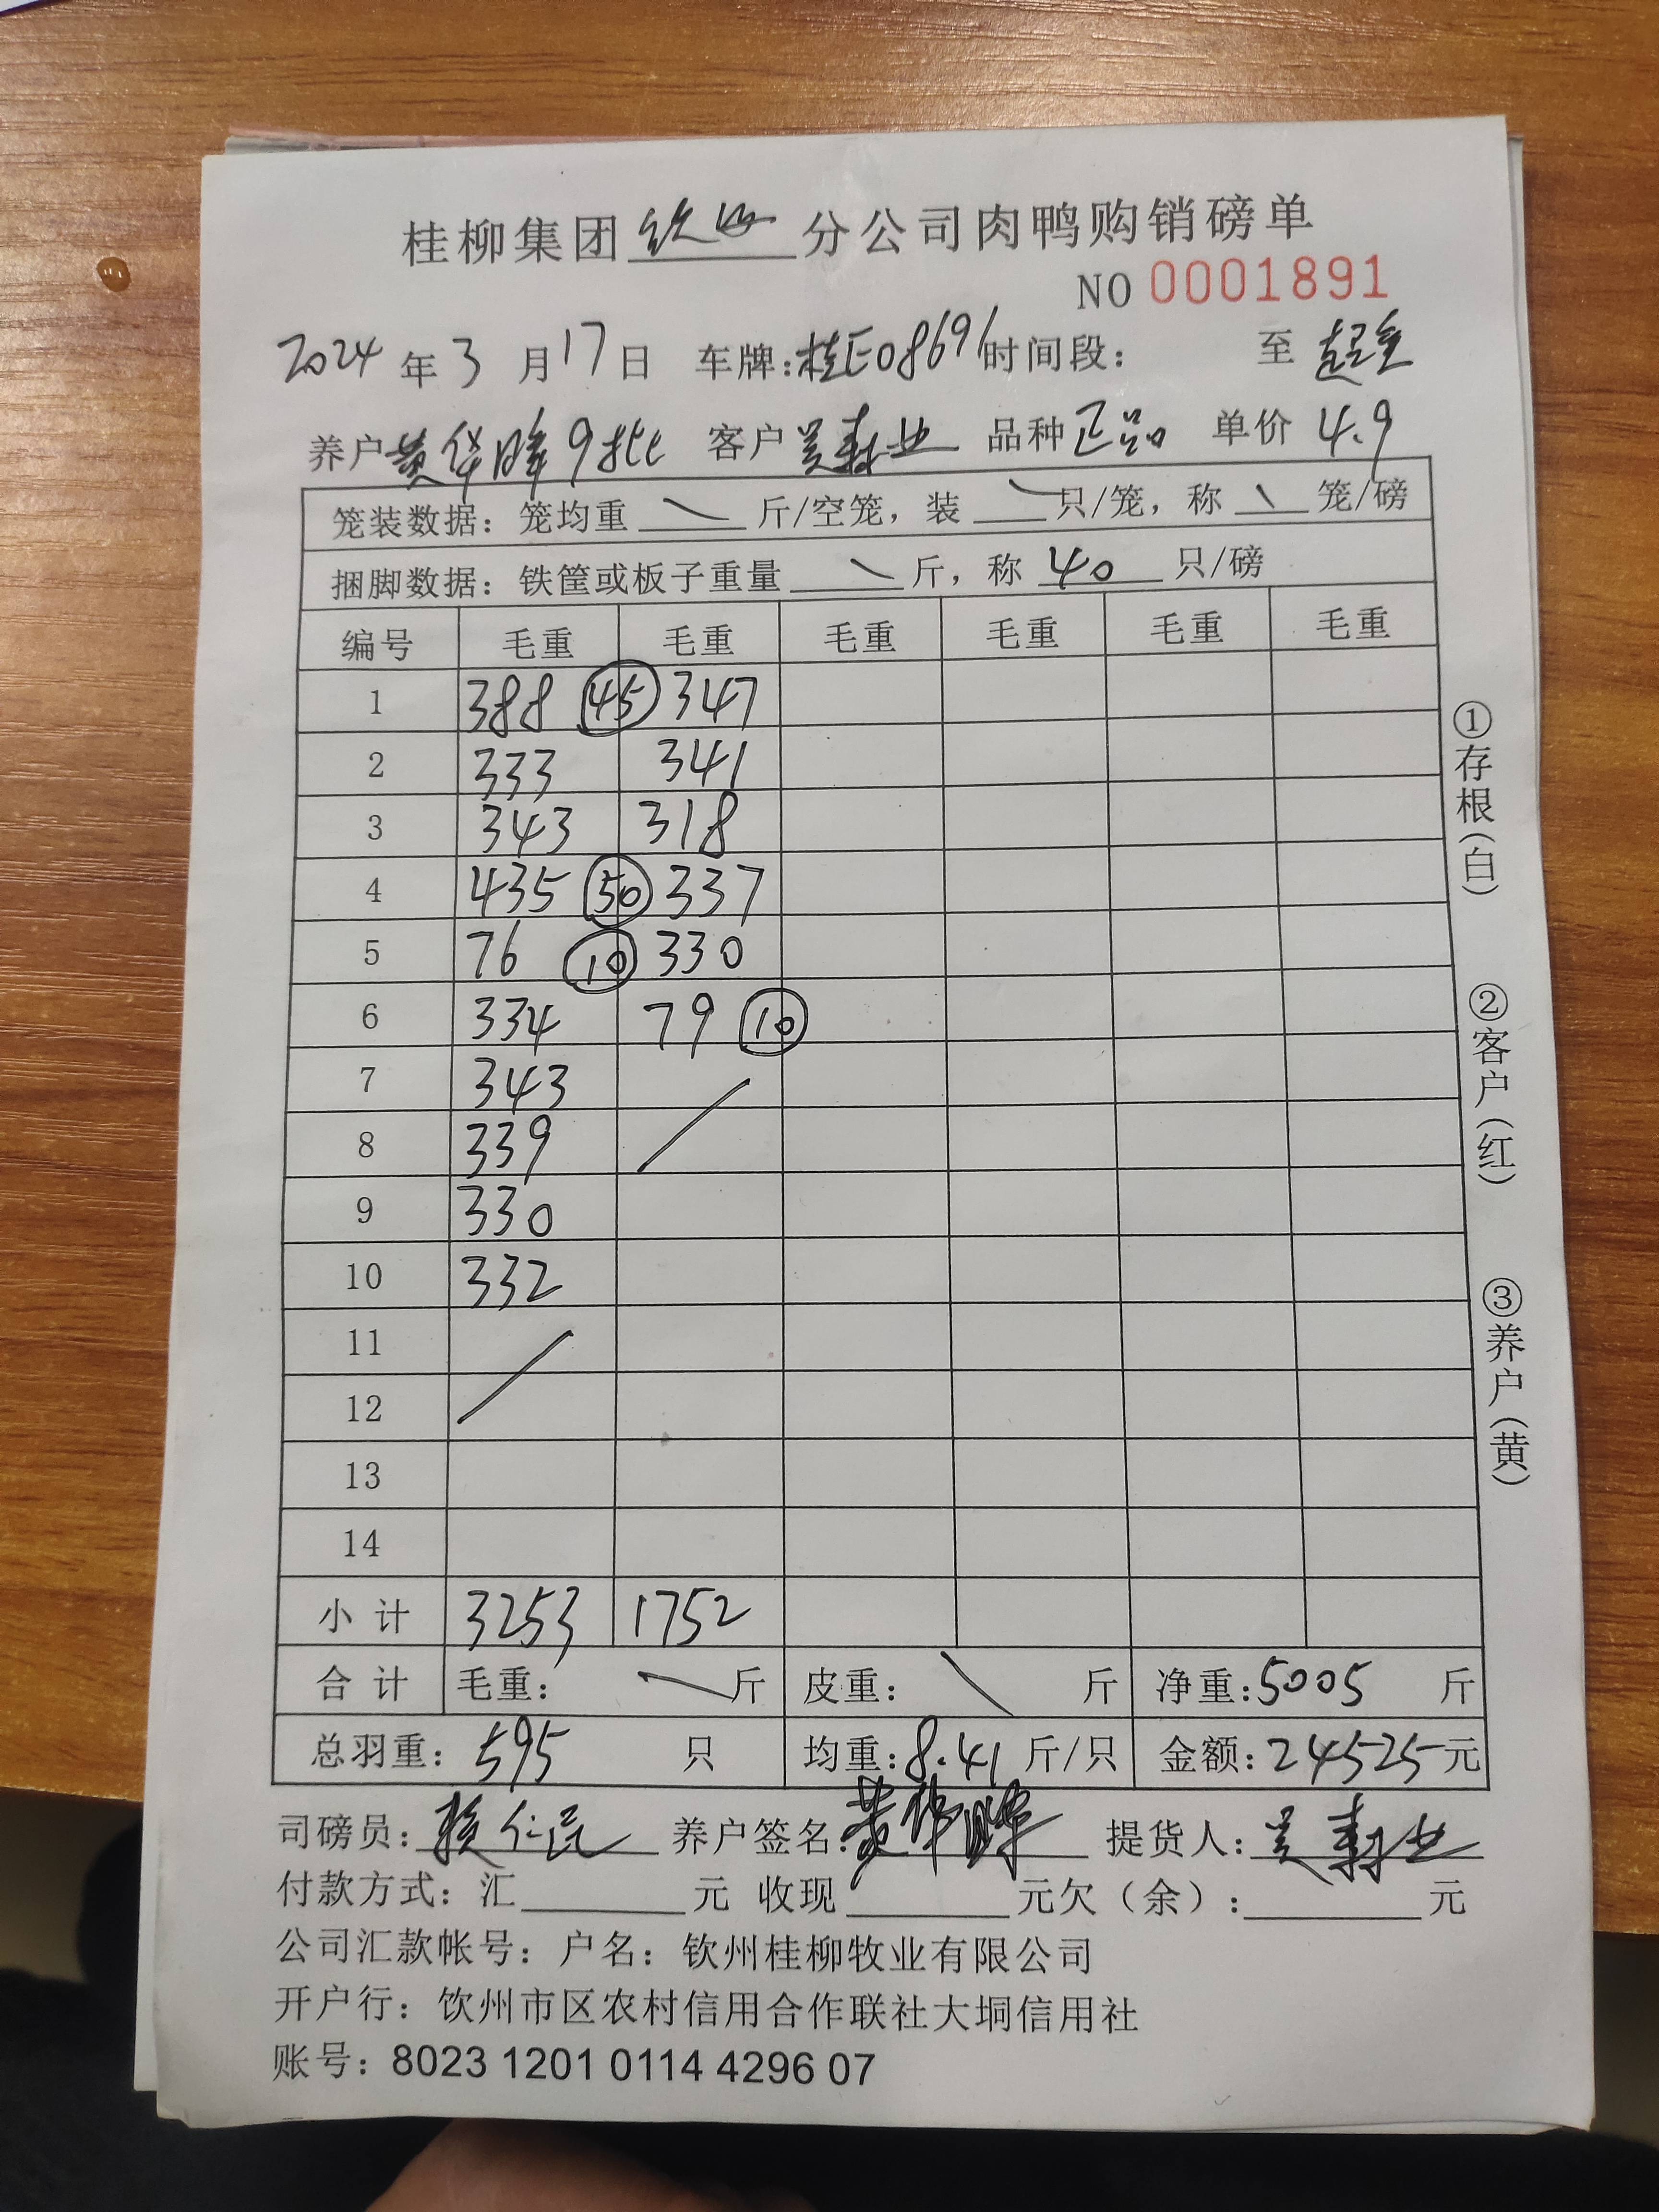 桂柳集团钦州分公司肉鸭购销磅单
NO 0001891
2024年3月17日 车牌:桂E08691时间段: 至
养户黄华晖9批 客户吴寿业 品种正品 单价4.9
笼装数据: 笼均重\斤/空笼, 装\只/笼, 称\笼/磅
捆脚数据: 铁筐或板子重量\斤, 称40只/磅
编号 毛重 毛重 毛重 毛重 毛重 毛重
1 388 45 347
2 333 341
3 343 318
4 435 50 337
5 76 10 330
6 334 79 10
7 343 /
8 339
9 330
10 332
11 /
12
13
14
小计 3253 1752
合计 毛重: \斤 皮重: \斤 净重:5005斤
总羽重: 595只 均重:8.41斤/只 金额:24525元
司磅员: 仁民 养户签名:黄华晖 提货人:吴寿业
付款方式: 汇____元 收现____元欠(余):____元
公司汇款帐号: 户名: 钦州桂柳牧业有限公司
开户行: 钦州市区农村信用合作联社大垌信用社
账号: 8023 1201 0114 4296 07
①存根(白)
②客户(红)
③养户(黄)